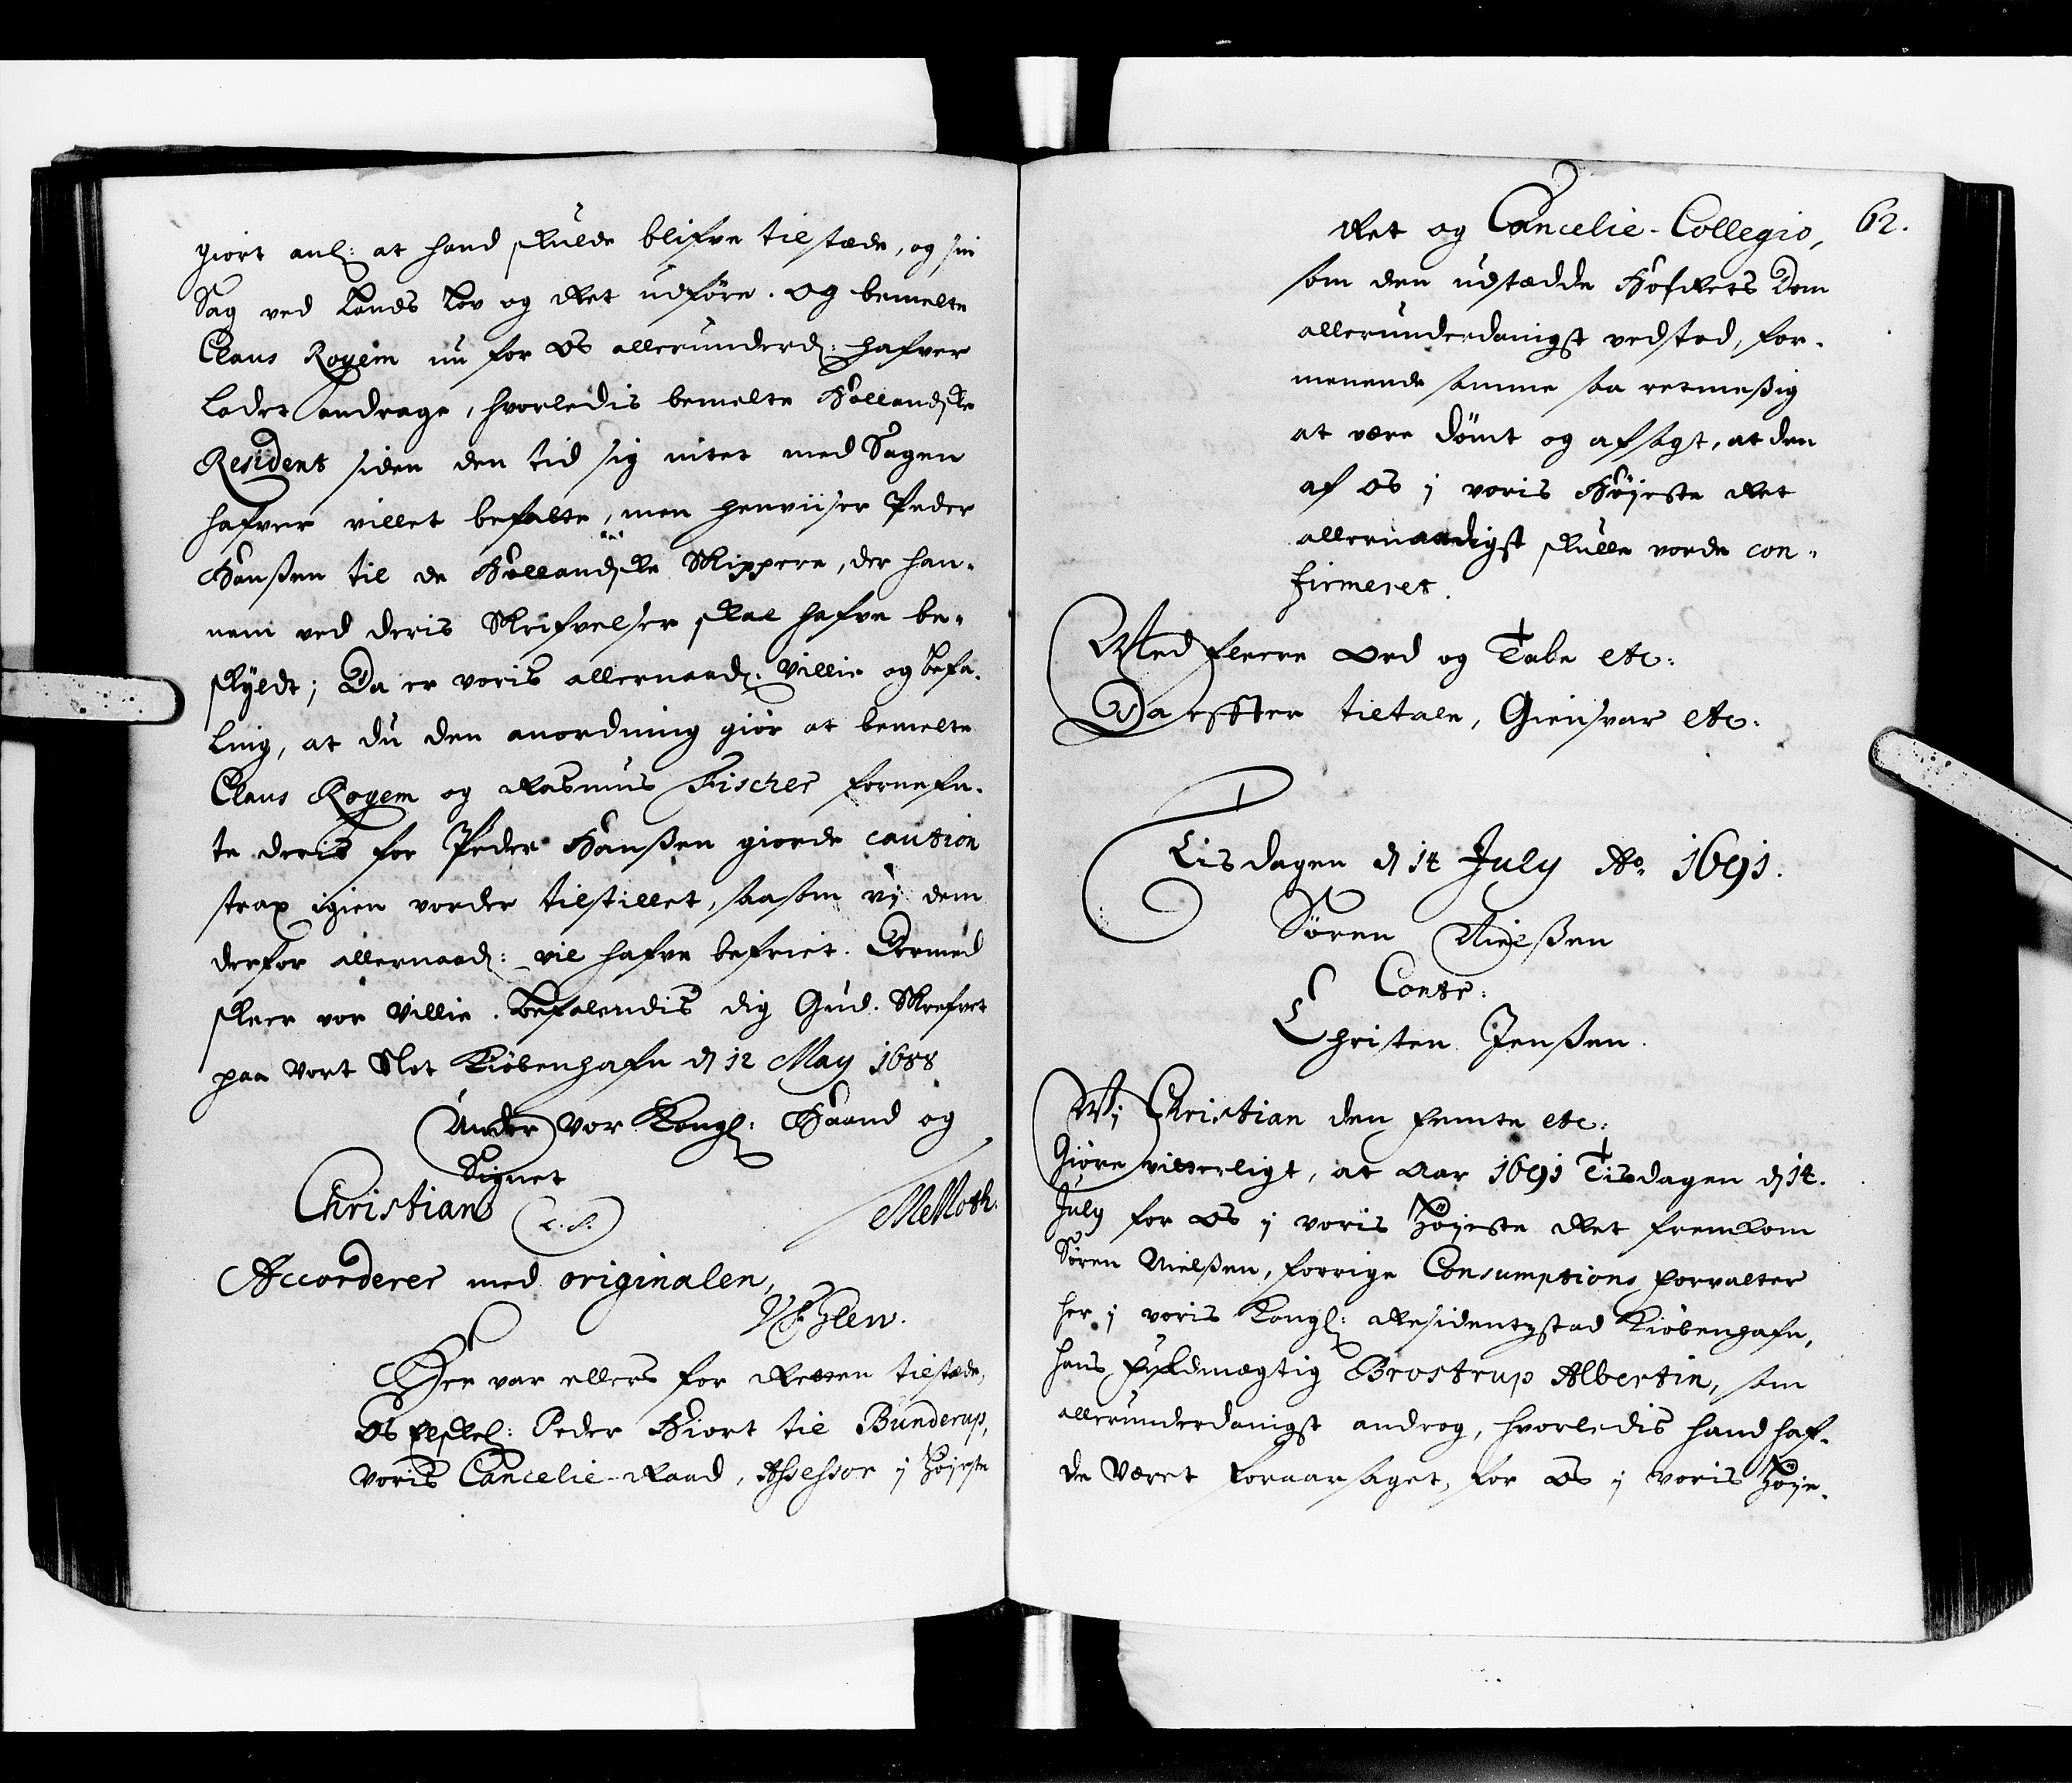 giort anl: at hand skulde blifve tilstæde, og sin
Sag ved Lands Lov og Ret udføre. Og bemelte
Claus Royem nu for Os allerunderd: hafver
ladet andrage, hvorledis bemelte Hollandske
Resident siden den tid sig intet med Sagen
hafver villet befatte, men henviiser Peder
Hanßen til de Hollandske Skippere, der han-
nem ved deris Skrifvelser skal hafve be-
skyldt; Da er voris allernaad: Villie og befa-
ling, at du den anordning giør at bemelte
Claus Royem og Rasmus Fischer fornefn-
te deris for Peder Hanßen giorde caution
strax igien vorder tilstillet, saasom vj dem
derfor allernaad: vil hafve befriet. Dermed
skeer vor Villie. Befalendis dig Gud. Skrefvet
paa Vort Slot Kiøbenhafn d 12 May 1688
Under Vor Kongl: Haand og
Signet
Christian L.S. MMoth.
Accorderer med originalen,
Der var ellers for Retten tilstæde,
Os Elskel: Peder Hiort til Bunderup,
Voris Cancelie-Raad, Assessor j Højeste
62.
Ret og Cancelie-Collegio,
som den udstædde HofRets Dom
allerunderdanigst vedstod, for-
menende samme saa retmeßig
at være dømt og afsagt, at den
af Os j voris Højeste Ret
allernaadigst skulle vorde con-
firmeret.
Med fleere Ord og Tale etc:
Da effter tiltale, Giensvar etc:
Tisdagen d 14 July Ao 1691.
Søren Nielßen
Contr:
Christen Jenßen.
Wj Christian den femte etc:
Giøre vitterligt, at Aar 1691 Tisdagen d 14.
July for Os j voris Højeste Ret fremkom
Søren Nielßen, forrige Consumptions forvalter
her j voris Kongl: Residentzstad Kiøbenhafn,
hans fuldmægtig Brostrup Albertin, som
allerunderdanigst androg, hvorledis hand haf-
de Været foraarsaget, for Os j voris Høje-